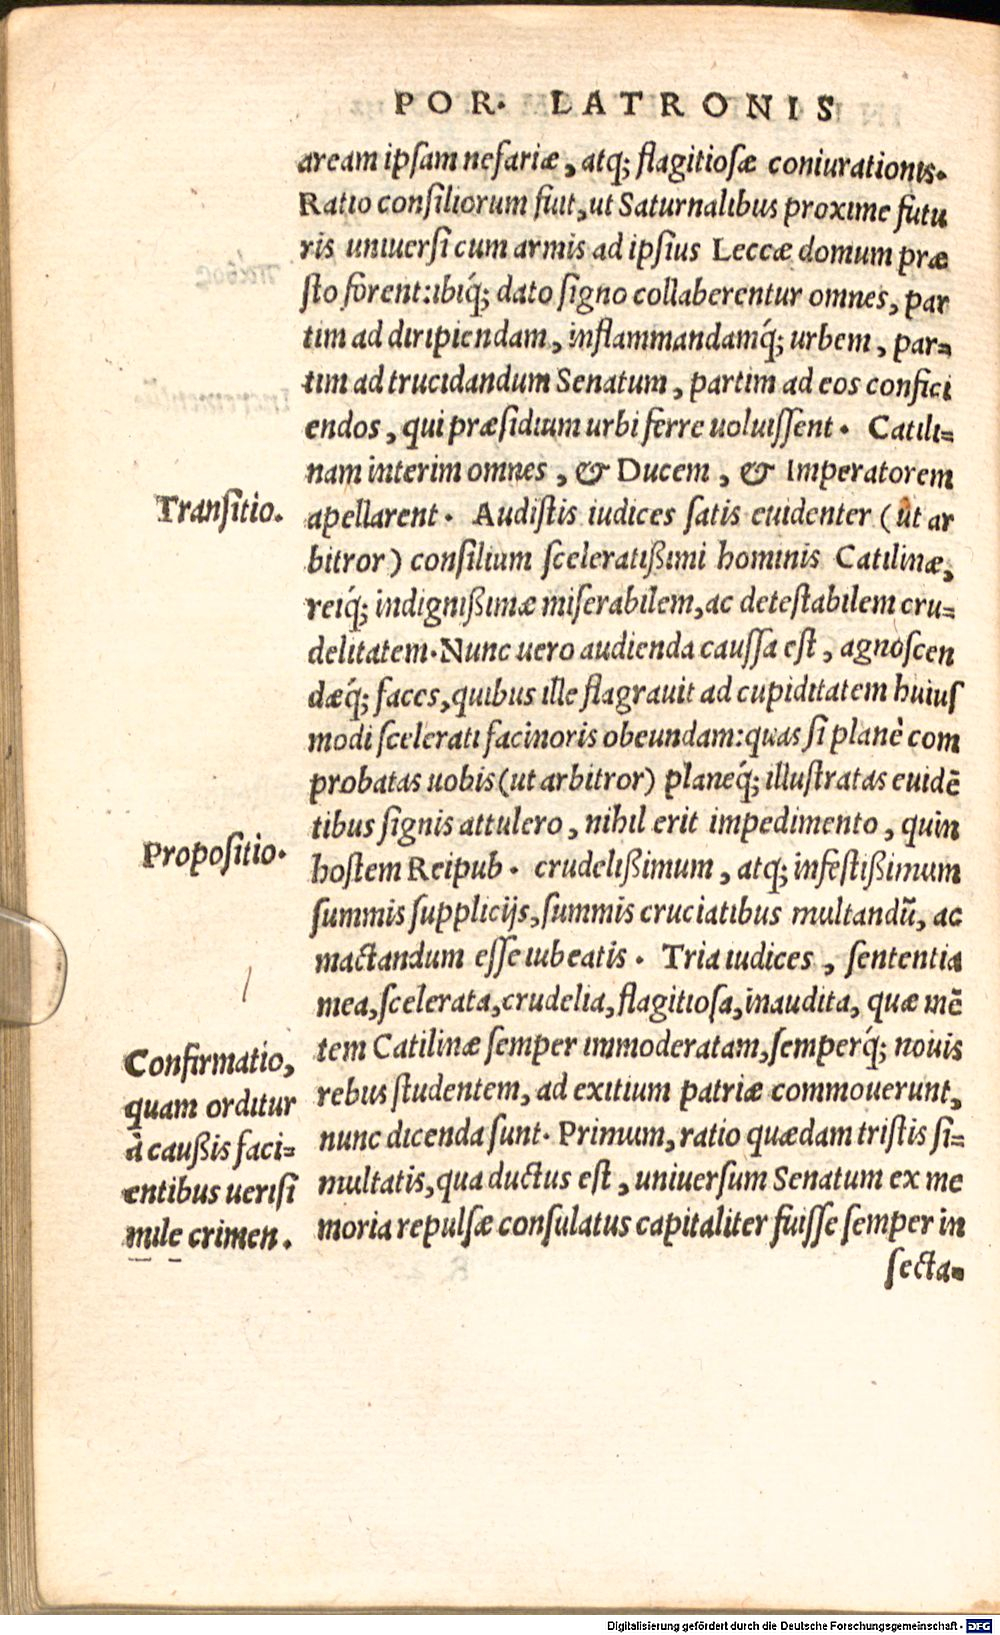 POR. LATRONIS
aream ipſam nefariæ, atq; flagitioſæ coniurationis.
Ratio conſiliorum fuit, ut Saturnalibus proxime futu
ris uniuerſi cum armis ad ipſius Leccæ domum præ
ſto forent: ibiq́; dato ſigno collaberentur omnes, par
tim ad diripiendam, inflammandamq́; urbem, par=
tim ad trucidandum Senatum, partim ad eos confici
endos, qui præſidium urbi ferre uoluiſſent. Catili=
nam interim omnes, & Ducem, & Imperatorem
Tranſitio.
apellarent. Audiſtis iudices ſatis euidenter (ut ar
bitror) conſilium ſceleratißimi hominis Catilinæ,
reiq́; indignißimæ miſerabilem, ac deteſtabilem cru=
delitatem. Nunc uero audienda cauſſa eſt, agnoſcen
dæq́; faces, quibus ille flagrauit ad cupiditatem huiuſ
modi ſcelerati facinoris obeundam: quas ſi planè com
probatas uobis (ut arbitror) planeq́; illuſtratas euidẽ
tibus ſignis attulero, nihil erit impedimento, quin
Propoſitio.
hoſtem Reipub. crudelißimum, atq; infeſtißimum
ſummis ſupplicijs, ſummis cruciatibus multandũ, ac
mactandum eſſe iubeatis. Tria iudices, ſententia
mea, ſcelerata, crudelia, flagitioſa, inaudita, quæ mẽ
tem Catilinæ ſemper immoderatam, ſemperq́; nouis
rebus ſtudentem, ad exitium patriæ commouerunt,
nunc dicenda ſunt. Primum, ratio quædam triſtis ſi=
multatis, qua ductus eſt, uniuerſum Senatum ex me
moria repulſæ conſulatus capitaliter fuiſſe ſemper in
Confirmatio,
quam orditur
à caußis faci=
entibus ueriſi
mile crimen.
ſecta=
Digitalisierung gefördert durch die Deutsche Forschungsgemeinschaft - DFG